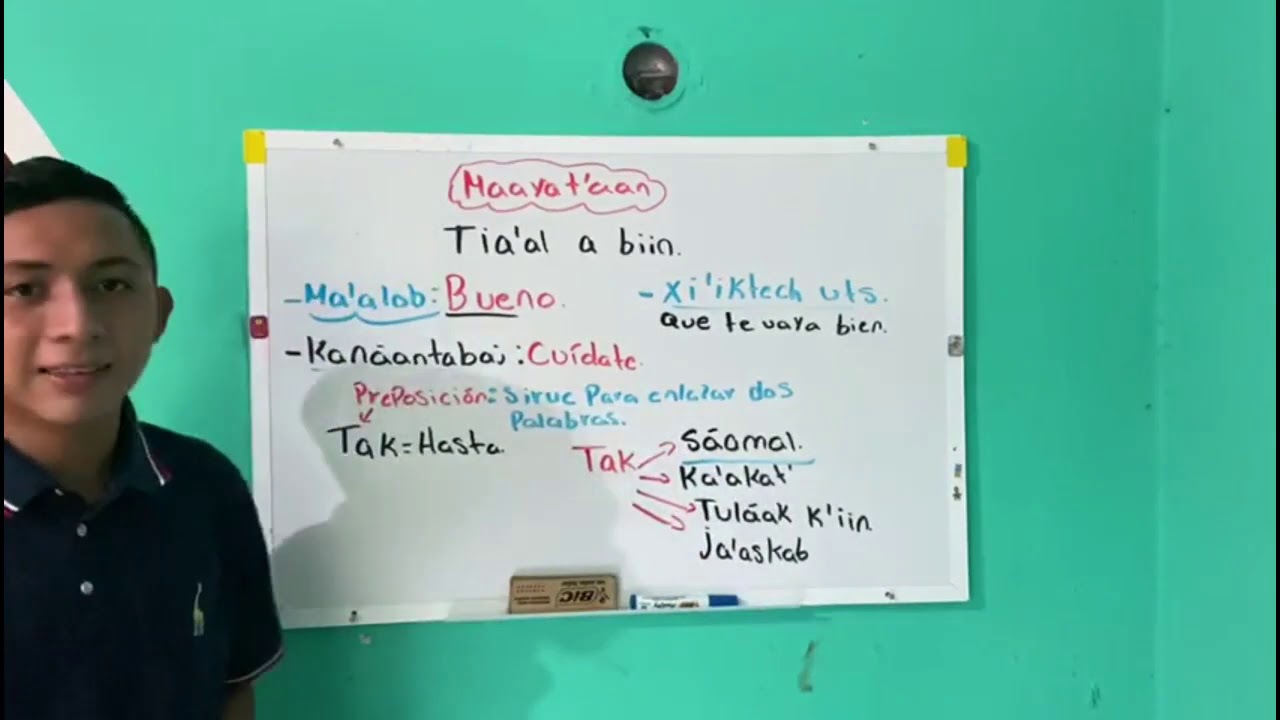 Maayat'aan
Tia'al a biin.
-Ma'alob: Bueno.
-Kanáantabaj: Cuídate.
-Xi'iktech uts.
Que te vaya bien.
Preposición: Sirve para enlazar dos
Palabras.
Tak = Hasta.
Tak
Sáamal.
Ka'akat'
Tuláak k'iin
Ja'askab
BIC